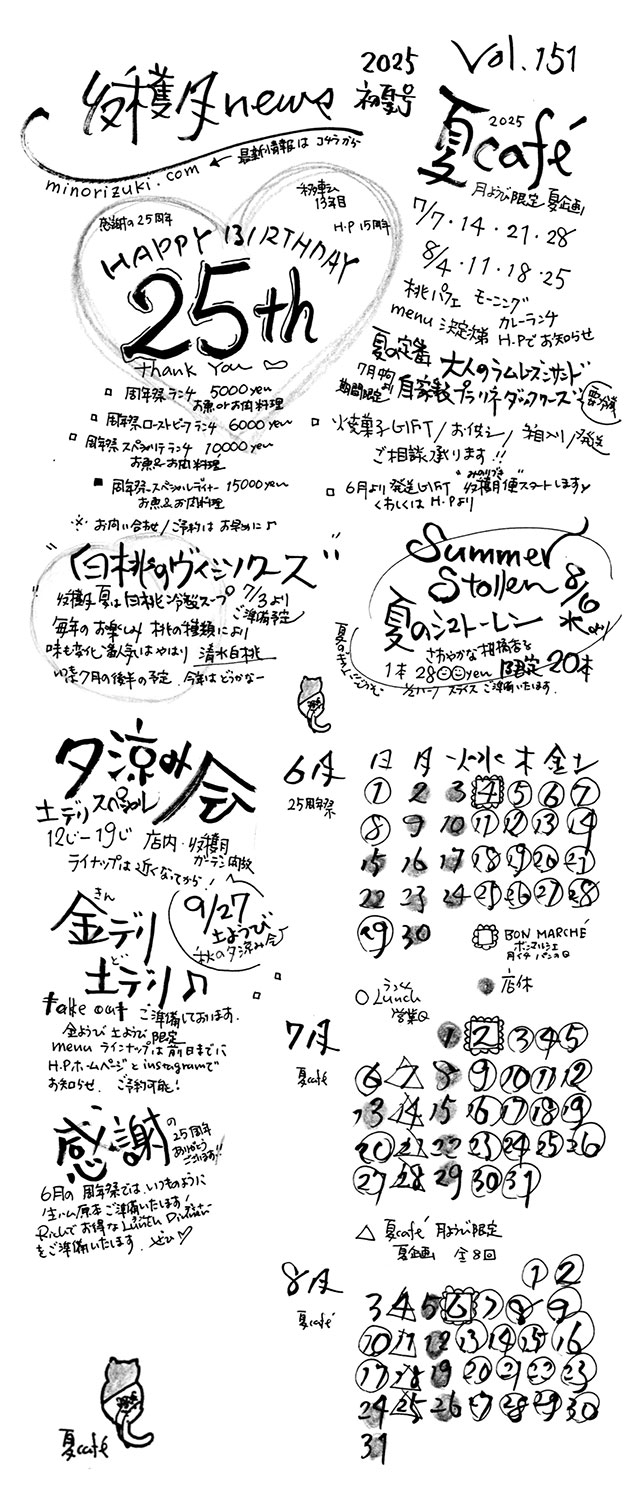 Vol.151
2025
初夏号
収穫月news
最新情報は コチラから
minorizuki.com
2025
夏café
月ようび限定 夏企画
7/7・14・21・28
8/4・11・18・25
桃パフェ モーニング
カレーランチ
menu 決定次第 H.Pでお知らせ
感謝の25周年
移転
13年目
H・P 15周年
HAPPY BIRTHDAY
25th
thank You
□ 周年祭ランチ 5000yen
お魚orお肉料理
□ 周年祭ローストビーフランチ 6000yen
□ 周年祭スペシャルランチ 10,000yen
お魚&お肉料理
■ 周年祭スペシャルディナー 15000yen
お魚&お肉料理
※ お問い合せ/ご予約は お早めに♪
夏の定番 大人のラムレーズンサンド
7月中旬より
期間限定 自家製プラリネダックワーズ
要冷蔵
□ 焼菓子GIFT/お供え/箱入り/発送
ご相談承ります!!
□ 6月より発送GIFT "収穫月便"スタートします
みのりづき
くわしくは H.Pより
"白桃のヴィシソワーズ"
収穫月 夏は白桃冷製スープ 7/3より
ご準備予定
毎年のお楽しみ 桃の種類により
味も変化 一番人気はやはり 清水白桃
いつも7月の後半の予定 今年はどうかなー
Summer
Stollen
8/6
水より
夏のシュトーレン
さわやかな柑橘香る
1本 2800yen 限定20本
1/2 ハーフ スライス ご準備いたします.
夕涼み会
土デリスペシャル
12じ-19じ 店内・収穫月
ガーデン開放
ライナップは近くなってから!
9/27
土ようび
秋の夕涼み会♪
きん
金デリ
ど
土デリ♫
take out ご準備しております.
金ようび 土ようび 限定
menu ラインナップは前日までに
H.Pホームページとinstagramで
お知らせ. ご予約可能!
感謝の
25周年
ありがとう
ございます!!
6月の 周年祭では、いつものように
生ハム原木ご準備いたします!
お得なLunch Dinner
をご準備いたします. ぜひ♡
夏café
6月
25周年祭
日 月 火 水 木 金 土
1 2 3 4 5 6 7
8 9 10 11 12 13 14
15 16 17 18 19 20 21
22 23 24 25 26 27 28
29 30
BON MARCHÉ
ボンマルシェ
月イチ パンの日
○ Lunch
らんち
営業日
店休
7月
夏café
1 2 3 4 5
6 7 8 9 10 11 12
13 14 15 16 17 18 19
20 21 22 23 24 25 26
27 28 29 30 31
△ 夏café 月ようび限定
夏企画 全8回
8月
夏café
1 2
3 4 5 6 7 8 9
10 11 12 13 14 15 16
17 18 19 20 21 22 23
24 25 26 27 28 29 30
31